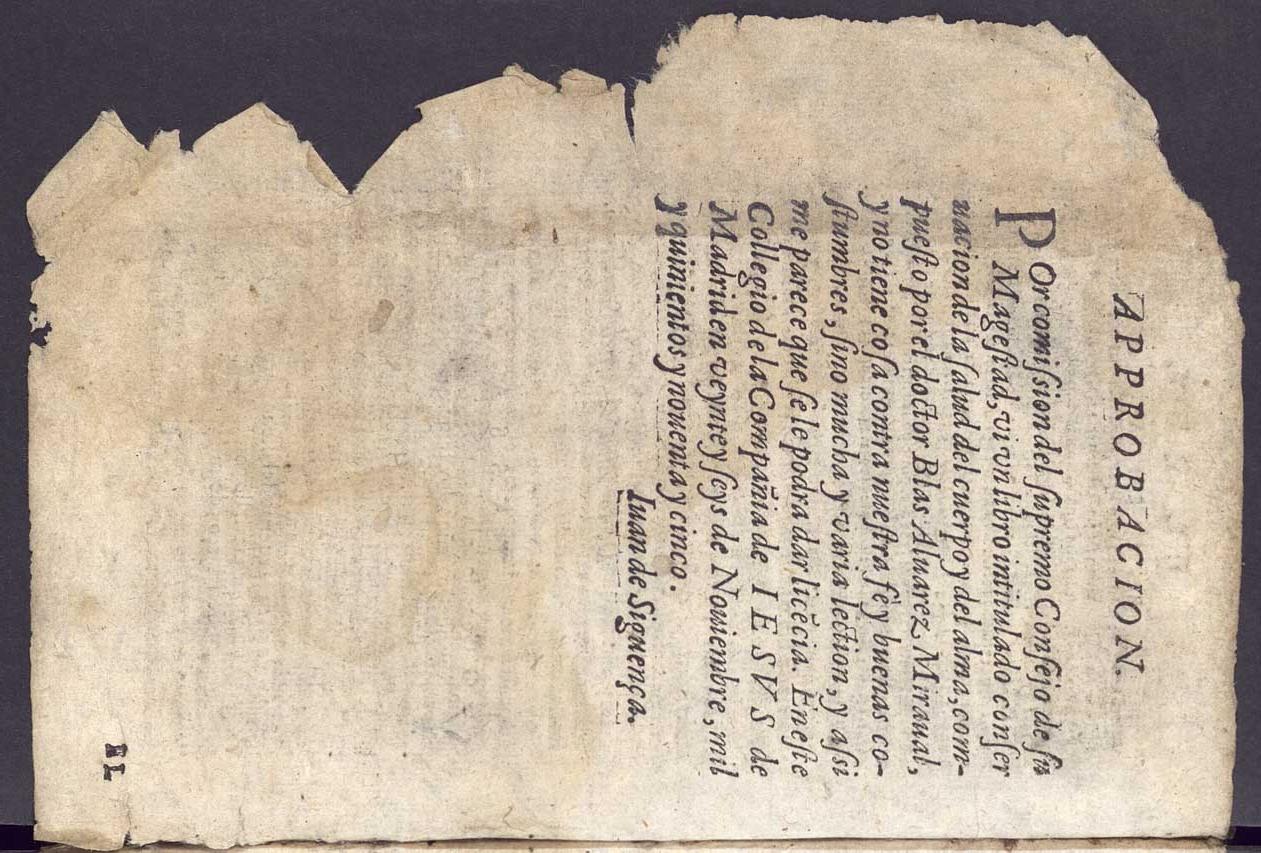 APPROBACION.
POr comiſsion del ſupremo Conſejo de ſu
Mageſtad, vi vn libro intitulado conſer
uacion de la ſalud del cuerpo y del alma, com-
pueſto por el doctor Blas Aluarez Miraual,
y no tiene coſa contra nueſtra fè y buenas co-
ſtumbres, ſino mucha y varia lection, y aſsi
me parece que ſe le podra dar licẽcia. En eſte
Collegio de la Compañia de IESVS de
Madrid en veynte y ſeys de Nouiembre, mil
y quinientos y nouenta y cinco.
Iuan de Siguença.
EL